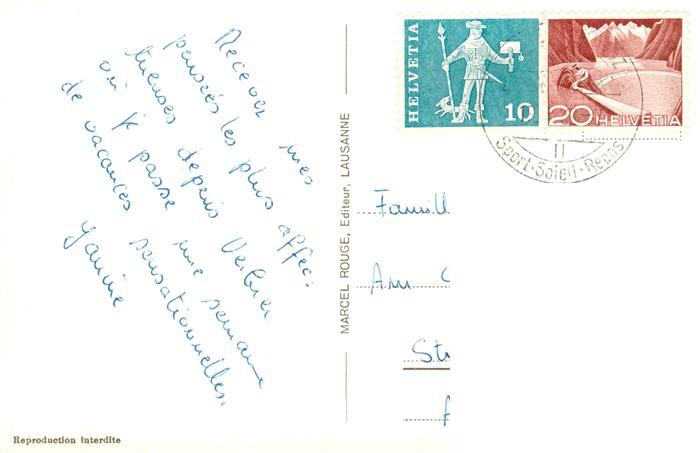 Recevez mes
pensées les plus affec-
tueuses depuis Verbier
où je passe une semaine
de vacances sensationnelles.
Yanine
MARCEL ROUGE, Editeur, LAUSANNE
HELVETIA
10
20 HELVETIA
11
Sport-Soleil-Repos
Famill
Am
Reproduction interdite